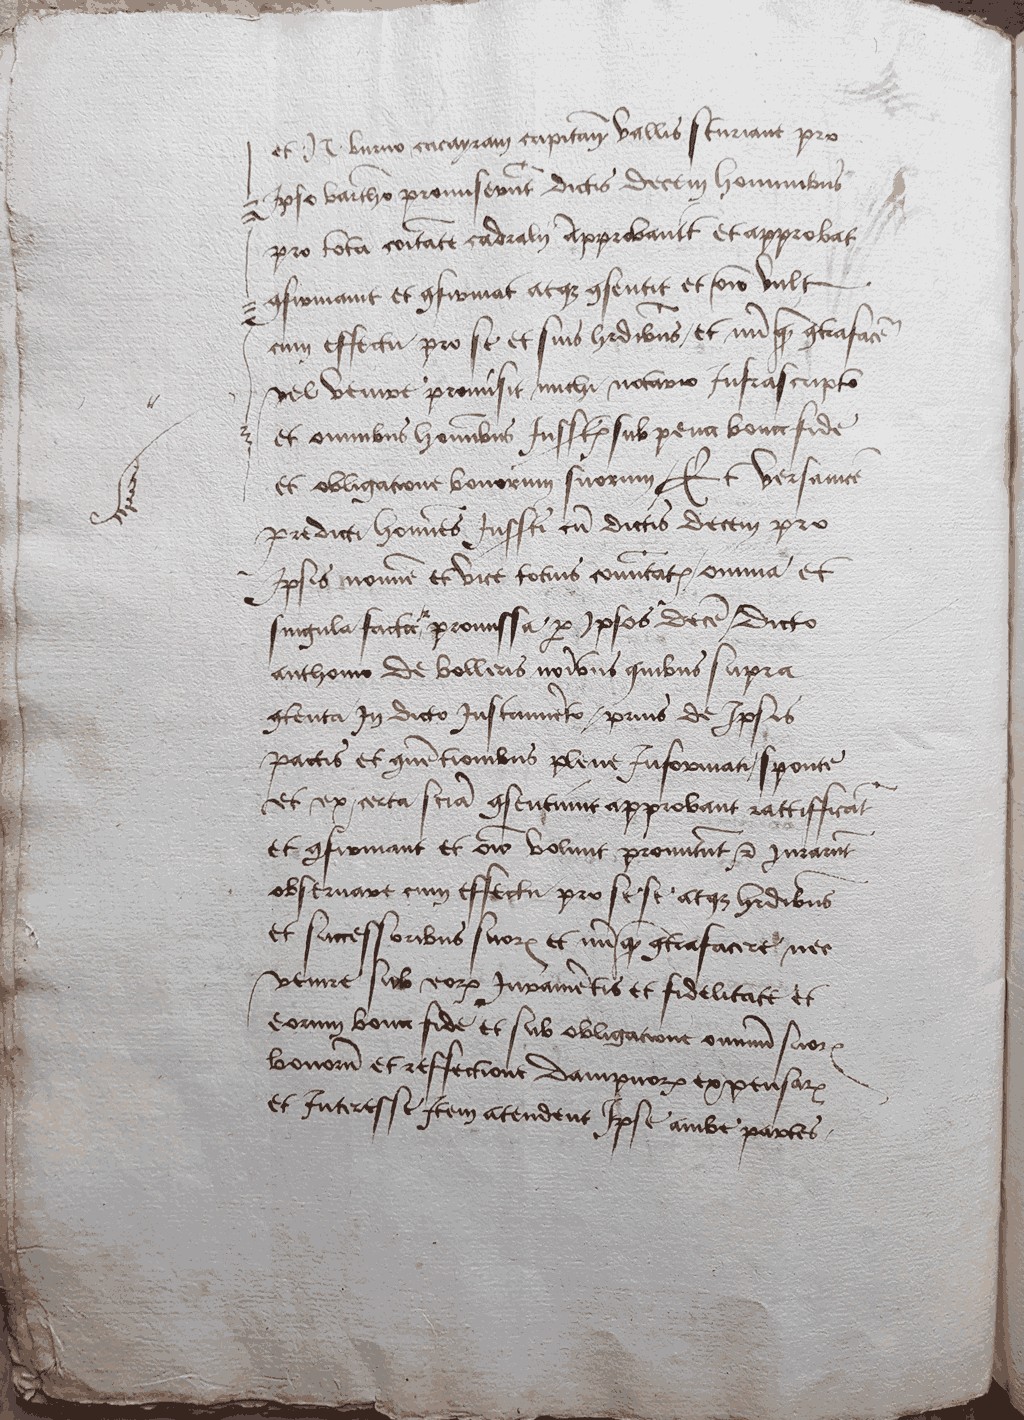 et N. burno cacayram capitam vallis sturiane pro
Ipso bartho promiserunt dictis decem hominibus
pro tota coitate cadraly Approbavit et approbat
gfirmavit et gfirmat atqz gsentit et oio vult
cum effectu pro se et suis hrdibus et nuqz gtrafacē
vel venire promisit michi notario Infrascripto
et omnibus hominibus Infrsti sub pena bona fide
et obligatione bonorum suorum Et versavice
predicti homines Infrsti cu dictis decem pro
Ipsis nomine et vice totius comitatz omnia et
singula facta et promissa p Ipsos decē Dicto
anthonio de bolleris noibus quibus supra
gtenta In dicto Instrumēto prius de Ipsis
pactis et guētionibus plene Informati sponte
et ex certa scia gsentiunt approbant rattifficāt
et gfirmant et oio volunt promitunt et Jurarunt
observare cum effectu pro se se atqz hrdibus
et successoribus suorz et nuqz gtrafacere nec
venire sub eorz Juramētis et fidelitate et
eorum bona fide et sub obligatione omnium suorz
bonorū et reffectione dampnorz expensarz
et Interesse Item atendent Ipse ambe partes